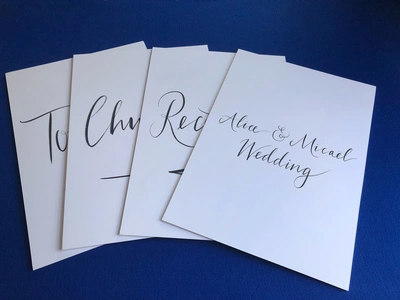 To
Chu
Rec
Alice & Micael
Wedding